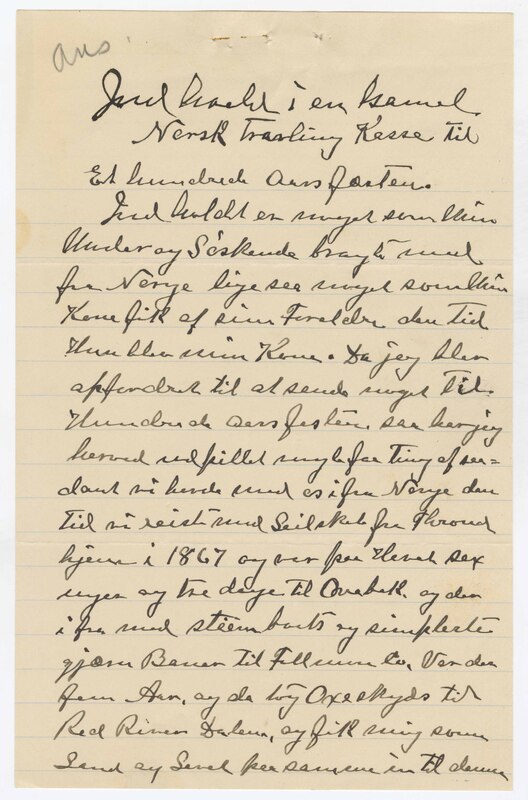 ans.
Ind hold i en Gamel
Norsk Travling Kasse til
Et hundrede aars festen.
Ind holdt en noget som Min
Moder og Söskende bragte med
fra Norge lige saa noget som Min
Kone fik af sine Foreldre den tid
Hun blev min Kone. Da jeg blev
opfordret til at sende noget til
Hundrede aars festen saa har jeg
herved udpillet nogle faa Ting af saa=
dant vi havde med os ifra Norge den
tid vi reiste med Seilskib fra Thrond
hjem i 1867 og var paa Havet sex
uger og tre dage til Qvebek og der
ifra med steem boats og simpleste
gjærn Baner til Fillmore Co, Var der
fem Aar, og da tog Oxeskyds til
Red River Dalen, og fik mig some
Land og Levet paa samme in til denne